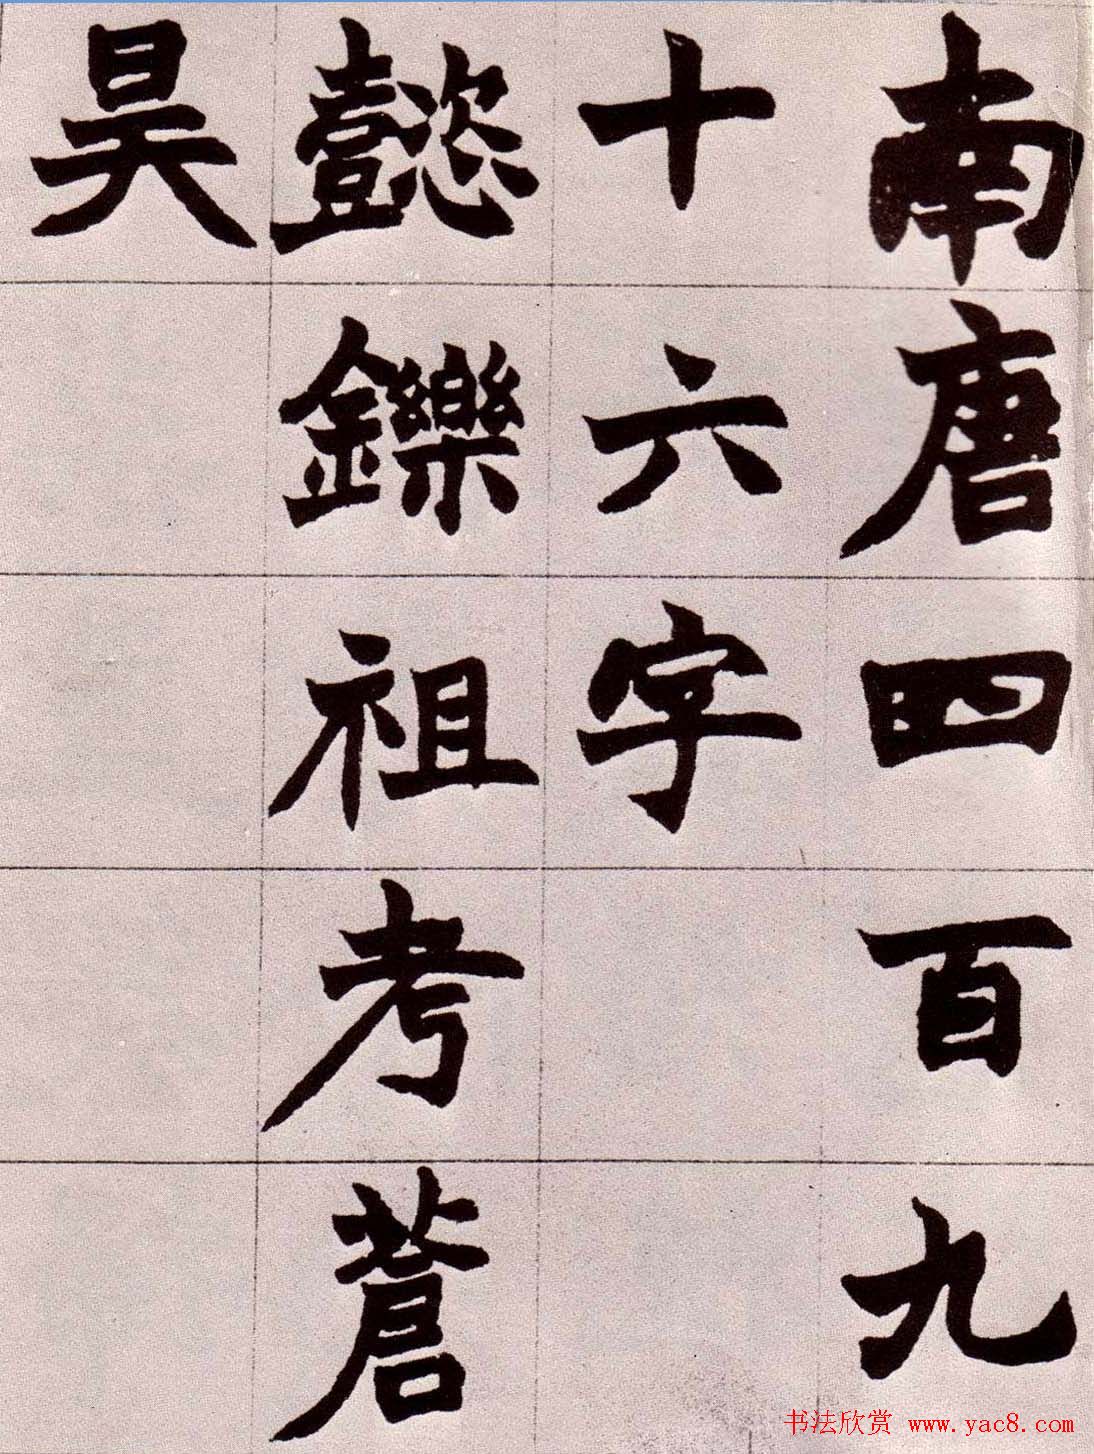 南唐四百九
十六字
懿鑠祖考蒼
昊
书法欣赏 www.yac8.com